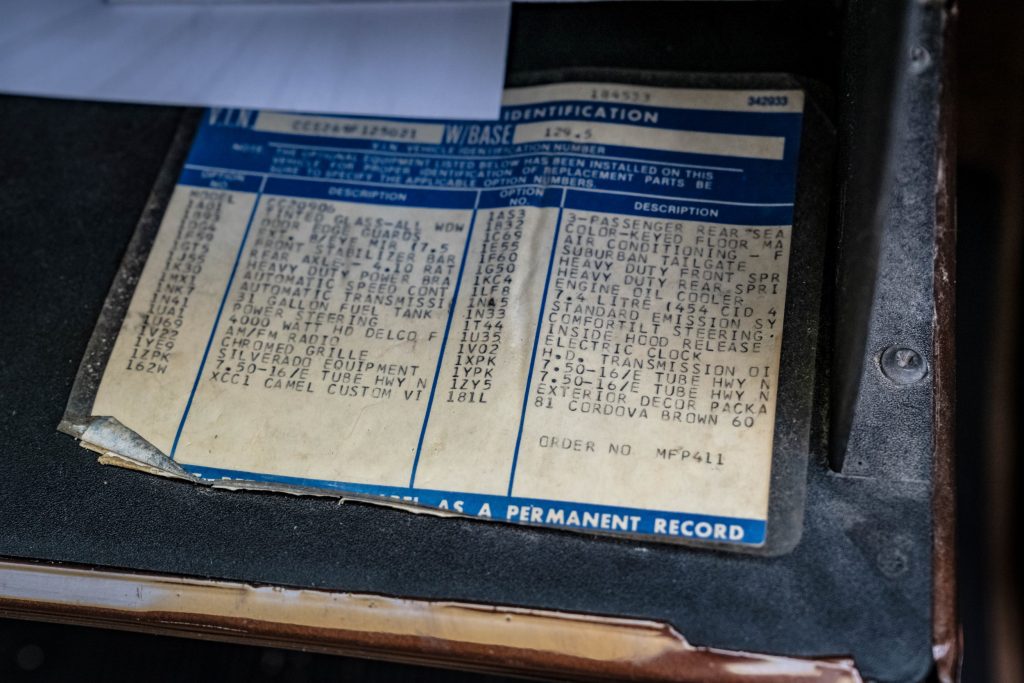 184533 342933
V.I.N. W/BASE 129.5 IDENTIFICATION
V.I.N. VEHICLE IDENTIFICATION NUMBER
NOTE: THE OPTIONAL EQUIPMENT LISTED BELOW HAS BEEN INSTALLED ON THIS
VEHICLE FOR PROPER IDENTIFICATION OF REPLACEMENT PARTS BE
SURE TO SPECIFY THE APPLICABLE OPTION NUMBERS.
OPTION NO. DESCRIPTION OPTION NO. DESCRIPTION
MODEL CC20906 1AS3 3-PASSENGER REAR SEA
TINTED GLASS-ALL WDW 1B32 COLOR-KEYED FLOOR MA
DOOR EDGE GUARDS 1C69 AIR CONDITIONING - F
EXT. B/EYE MIR (7.5 1E55 SUBURBAN TAILGATE
FRONT STABILIZER BAR 1F60 HEAVY DUTY FRONT SPR
1GT5 REAR AXLE - 4.10 RAT 1G50 HEAVY DUTY REAR SPRI
1J55 HEAVY DUTY POWER BRA 1KC4 ENGINE OIL COOLER
1K30 AUTOMATIC SPEED CONT 1LF8 7.4 LITRE (454 CID 4
AUTOMATIC TRANSMISSI 1NA5 STANDARD EMISSION SY
1NK7 31 GALLON FUEL TANK 1N33 COMFORTILT STEERING
1N41 POWER STEERING 1T44 INSIDE HOOD RELEASE
1UA1 4000 WATT HD DELCO F 1U35 ELECTRIC CLOCK
1U69 AM/FM RADIO 1V02 H.D. TRANSMISSION OI
1V22 CHROMED GRILLE 1XPK 7.50-16/E TUBE HWY N
1YE9 SILVERADO EQUIPMENT 1YPK 7.50-16/E TUBE HWY N
1ZPK 7.50-16/E TUBE HWY N 1ZY5 EXTERIOR DECOR PACKA
162W XCC1 CAMEL CUSTOM VI 181L 81 CORDOVA BROWN 60
ORDER NO MFP411
LABEL AS A PERMANENT RECORD